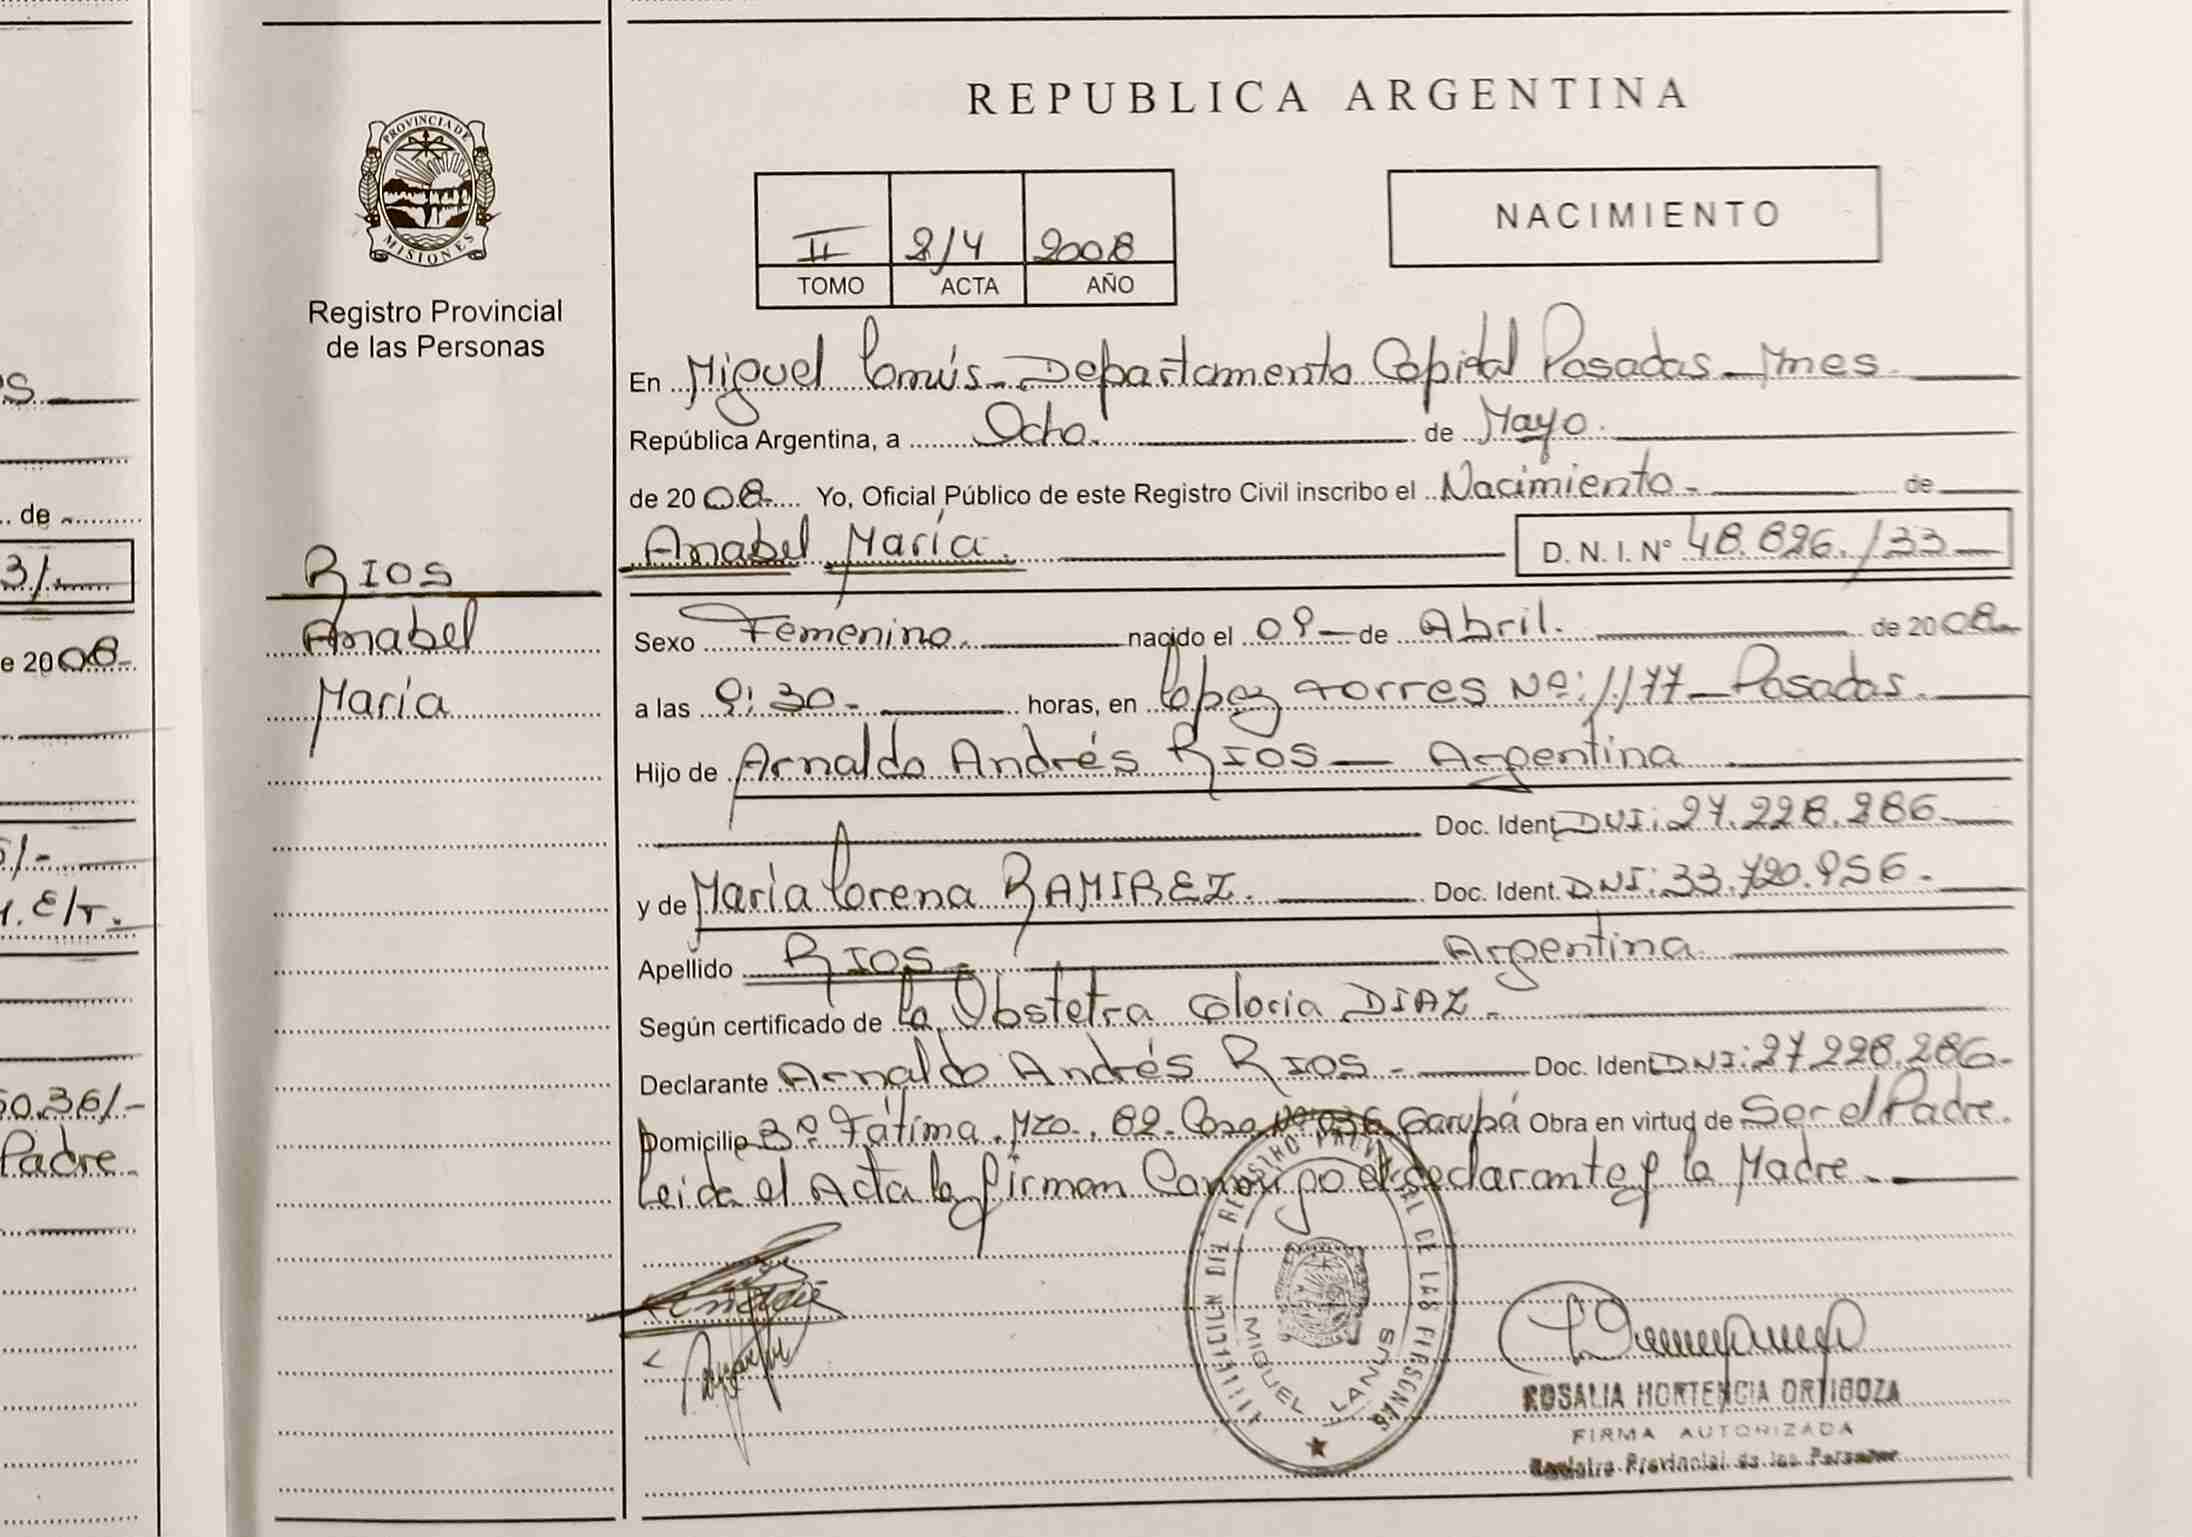 REPUBLICA ARGENTINA
PROVINCIA DE
MISIONES
Registro Provincial
de las Personas
II 214 2008
TOMO ACTA AÑO
NACIMIENTO
En Miguel Lanús - Departamento Capital Posadas - Mnes
República Argentina, a Ocho. de Mayo.
de 20 08- Yo, Oficial Público de este Registro Civil inscribo el Nacimiento - de
Anabel María. D. N. I. Nº 48.826.133
RIOS
Anabel
María
Sexo Femenino. nacido el 09 - de Abril. de 20 08-
a las 9:30- horas, en López torres Nº: 1177 - Posadas.
Hijo de Arnaldo Andrés RIOS - Argentina
Doc. Ident. DNI: 27.228.286-
y de María Lorena RAMIREZ. Doc. Ident. DNI: 33.720.956-
Apellido RIOS - Argentina
Según certificado de la Obstetra Gloria DIAZ -
Declarante Arnaldo Andrés RIOS - Doc. Ident. DNI: 27.228.286-
Domicilio Bº Fátima. Mzo. 82. Casa Nº 036 Garupá Obra en virtud de Ser el Padre.
Leida el Acta la firman Conmigo el declarante y la Madre.
REGISTRO PROVINCIAL DE LAS PERSONAS
MIGUEL LANUS
ROSALIA HORTENCIA ORTIGOZA
FIRMA AUTORIZADA
Registro Provincial de las Personas
de
31-
e 20 08-
5/-
1. E/T.
50.361-
Padre